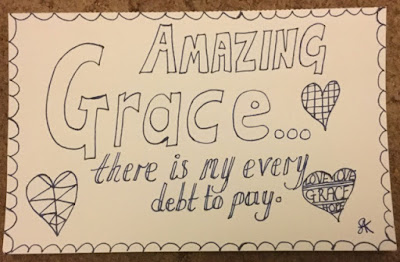 AMAZING
Grace...
there is my every
debt to pay.
LOVE LOVE
GRACE
HOPE